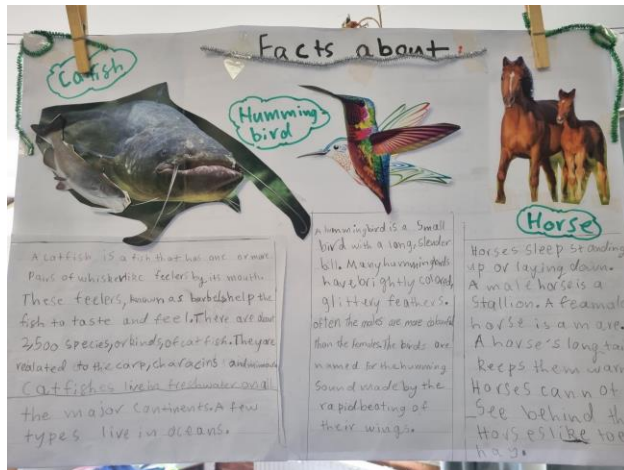 Facts about:
Catfish
Humming-
bird
Horse
A catfish is a fish that has one or more
Pairs of whiskerlike feelers by its mouth.
These feelers, known as barbels help the
fish to taste and feel. There are about
2,500 species, or kinds, of catfish. They are
realated to the carp, characins and
Catfishes live in freshwater on all
the major continents. A few
types live in oceans.
A hummingbird is a small
bird with a long, slender
bill. Many hummingbirds
have brightly colored,
glittery feathers.
often the males are more colourful
than the females. The birds are
named for the humming
Sound made by the
rapid beating of
their wings.
Horses sleep standing
up or laying down.
A male horse is a
Stallion. A feamale
horse is a mare.
A horse's long tail
Keeps them warm
Horses can not
See behind th
Horses like to e
hay.